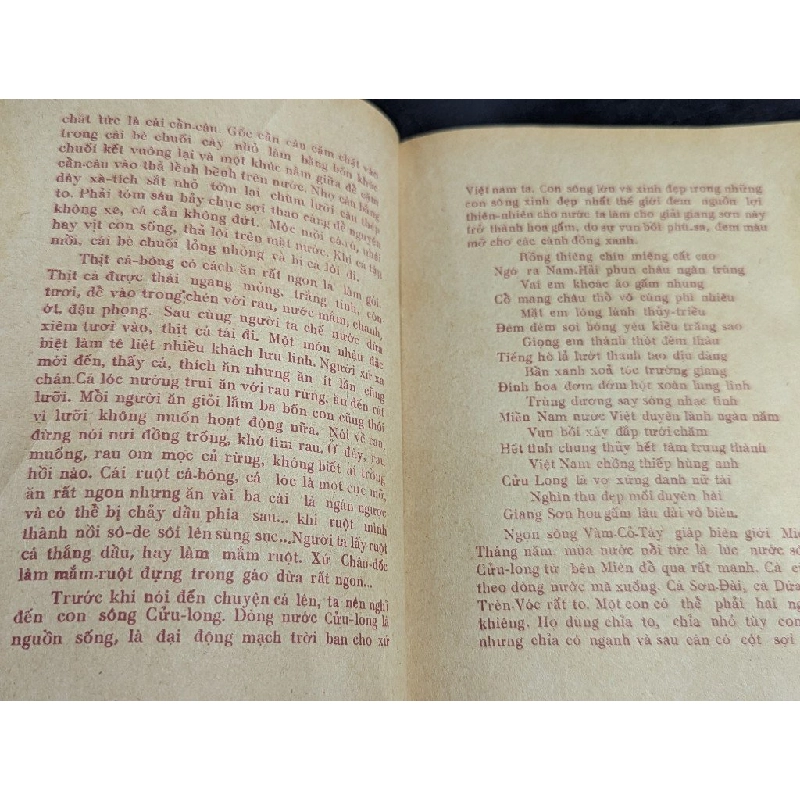 chất tức là cái cần-câu. Gốc cần câu cắm chặt vào
trong cái bè chuối cây nhỏ làm bằng bốn khúc
chuối kết vuông lại và một khúc nằm giữa để cắm
cần-câu vào thả lềnh bềnh trên nước. Nhợ câu bằng
dây xà-tích sắt nhỏ tóm lại chùm lưỡi câu thép
to. Phải tóm sáu bảy chục sợi thao càng để nguyên
không xe, cá cắn không đứt. Móc mồi cá-rô, nhái
hay vịt con sống, thả lôi trên mặt nước. Khi cá táp
mồi, cái bè chuối lỏng nhỏng và bị cá lôi đi.
Thịt cá-bông có cách ăn rất ngon là làm gỏi.
Thịt cá được thái ngang mỏng, trắng tinh, còn
tươi, để vào trong chén với rau, nước mắm, chanh,
ớt. đậu phọng. Sau cùng người ta chế nước dừa
xiêm tươi vào, thịt cá tái đi. Một món nhậu đặc
biệt làm tê liệt nhiều khách lưu linh. Người xứ xa
mới đến, thấy cá, thích ăn nhưng ăn ít lần cũng
chán. Cá lóc nướng trui ăn với rau rừng, ăn đến cứt
lưỡi. Mỗi người ăn giỏi lắm ba bốn con cũng thối
vị lưỡi không muốn hoạt động nữa. Nói về rau,
đừng nói nơi đồng trống, khó tìm rau. Ở đây, rau
muống, rau om mọc cả rừng, không biết ai trồng
hồi nào. Cái ruột cá-bông, cá lóc là một cục mỡ,
ăn rất ngon nhưng ăn vài ba cái là ngán ngược
và có thể bị chảy dầu phía sau... khi ruột mình
thành nồi số-de sôi lên sùng sục... Người ta lấy ruột
cá thắng dầu, hay làm mắm ruột. Xứ Châu-đốc
làm mắm-ruột đựng trong gáo dừa rất ngon...
Trước khi nói đến chuyện cá lên, ta nên nghĩ
đến con sông Cửu-long. Dòng nước Cửu-long là
nguồn sống, là đại động mạch trời ban cho xứ
Việt nam ta. Con sông lớn và xinh đẹp trong những
con sông xinh đẹp nhất thế giới đem nguồn lợi
thiên-nhiên cho nước ta làm cho giải giang sơn này
trở thành hoa gấm, do sự vun bồi phù-sa, đem màu
mỡ cho các cánh đồng xanh.
Rồng thiêng chín miệng cất cao
Ngó ra Nam-Hải phun châu ngăn trùng
Vai em khoác áo gấm nhung
Cỏ mang châu thổ vô cùng phì nhiêu
Mặt em lóng lánh thủy-triều
Đêm đêm soi bóng yêu kiều trăng sao
Giọng em thánh thót đêm thâu
Tiếng hò lả lướt thanh tao dịu dàng
Bần xanh xoả tóc trường giang
Đính hoa đơm đớm hột xoàn lung linh
Trùng dương say sóng nhạc tình
Miền Nam nước Việt duyên lành ngàn năm
Vun bồi xây đắp tưới chăm
Hết tình chung thủy hết tâm trung thành
Việt Nam chồng thiếp hùng anh
Cửu Long là vợ xứng danh nữ tài
Nghìn thu đẹp mối duyên hài
Giang Sơn hoa gấm lâu dài vô biên.
Ngọn sông Vàm-Cỏ-Tây giáp biên giới Miê
Tháng năm mùa nước nổi tức là lúc nước sô
Cửu-long từ bên Miên đổ qua rất mạnh. Cá c
theo dòng nước mã xuống. Cá Sơn-Đài, cá Dứa
Trên-Vóc rất to. Một con có thể phải hai ng
khiêng. Họ dùng chỉa to, chỉa nhỏ tùy con
nhưng chỉa có ngạnh và sau cán có cột sợi